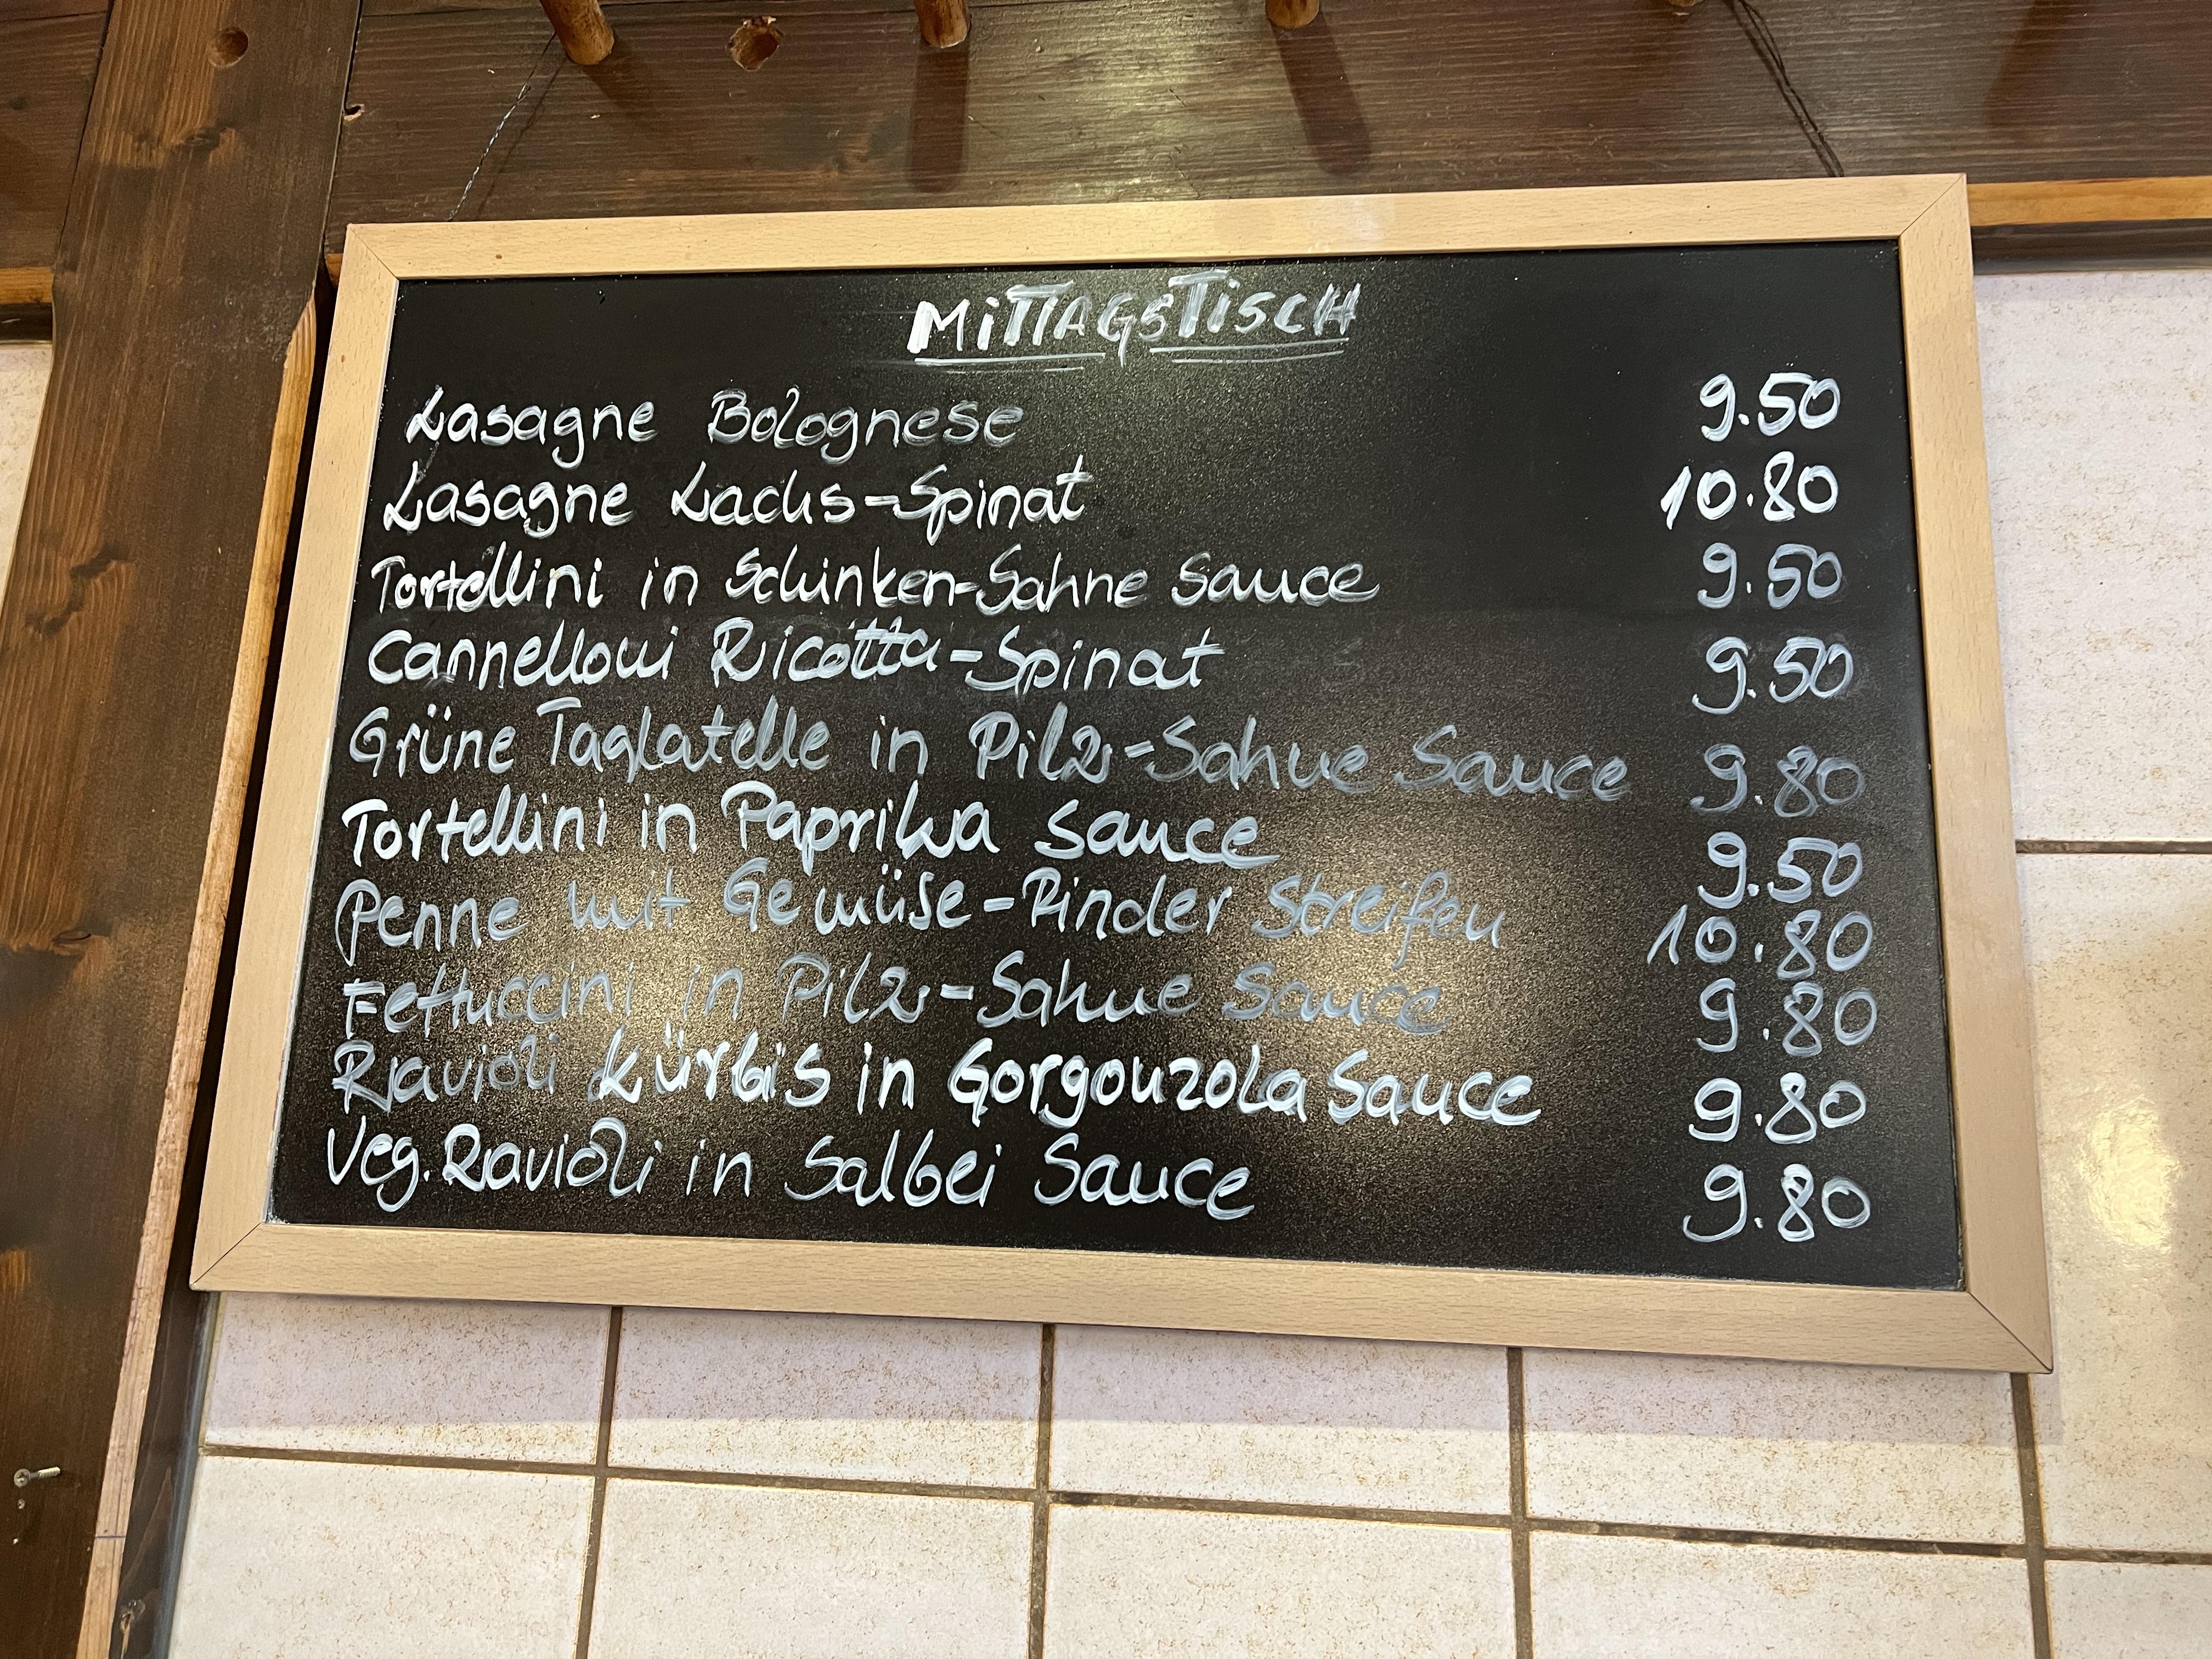 MITTAGSTISCH
Lasagne Bolognese 9.50
Lasagne Lachs-Spinat 10.80
Tortellini in Schinken-Sahne Sauce 9.50
Cannelloni Ricotta-Spinat 9.50
Grüne Taglatelle in Pilz-Sahne Sauce 9.80
Tortellini in Paprika Sauce 9.50
Penne mit Gemüse-Rinder Streifen 10.80
Fettuccini in Pilz-Sahne Sauce 9.80
Ravioli Kürbis in Gorgonzola Sauce 9.80
Veg. Ravioli in Salbei Sauce 9.80